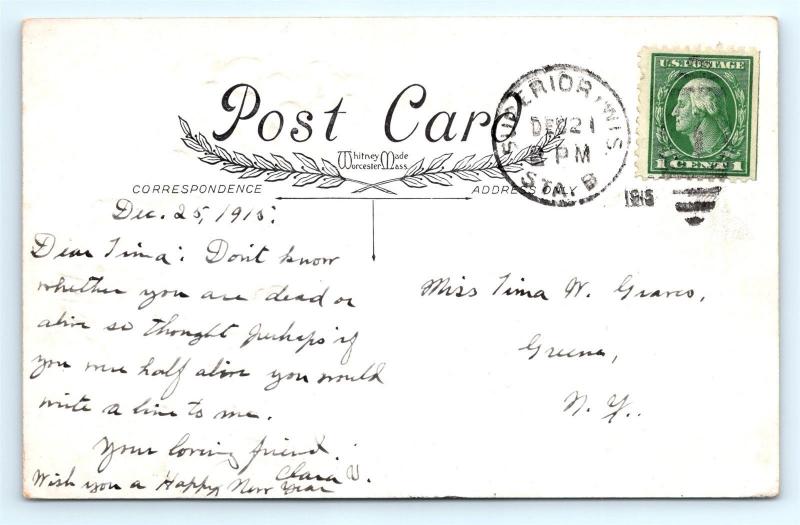 Post Card
Whitney Made
Worcester, Mass.
CORRESPONDENCE
ADDRESS ONLY
SUPERIOR, WIS.
DEC 21
PM
STA. B
1915
U.S. POSTAGE
1 CENT 1
Dec. 25, 1915.
Dear Tima: Don't know
whether you are dead or
alive so thought perhaps if
you were half alive you would
write a line to me.
Your loving friend.
Clara V.
Wish you a Happy New Year
Miss Tima W. Graves,
Greene,
N. Y.